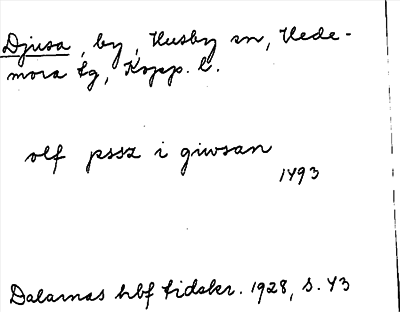 Djusa, by, Husby sn, Hede-
mora tg, Kopp. l.
olf pssz i giwsan
1493
Dalarnas hbf tidskr. 1928, s. 43